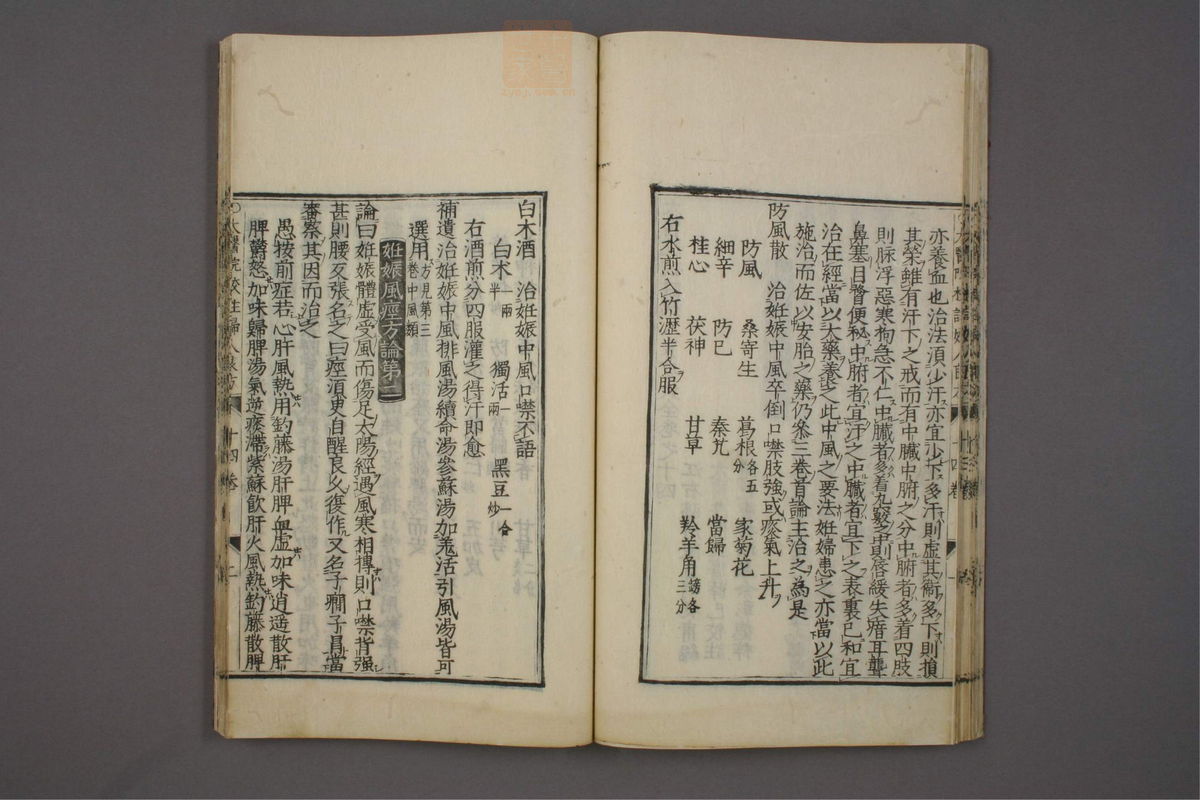 亦養血也治法須少汗亦宜少下多汗則虛其衞多下則損
其榮雖有汗下之戒而有中臟中腑之分中腑者多着四肢
則脉浮惡寒拘急不仁中臟者多着九竅則唇緩失瘖耳聾
鼻塞目瞀便秘中腑者宜汗之中臟者宜下之表裏已和宜
治在經當以大藥養之此中風之要法姙婦患之亦當以此
施治而佐以安胎之藥仍叅三卷首論主治之為是
防風散 治姙娠中風卒倒口噤肢強或痰氣上升
防風 桑寄生 葛根各五分 家菊花
細辛 防已 秦艽 當歸
桂心 茯神 甘草 羚羊角鎊各三分
右水煎入竹瀝半合服
白术酒 治姙娠中風口噤不語
白术一兩半 獨活一兩 黑豆一合炒
右酒煎分四服灌之得汗即愈
補遺治姙娠中風排風湯續命湯參蘇湯加羗活引風湯皆可
選用方見第三卷中風類
姙娠風痙方論第二
論曰姙娠體虛受風而傷足太陽經遇風寒相摶則口噤背强
甚則腰反張名之曰痙須臾自醒良久復作又名子癎子冒當
審察其因而治之
愚按前症若心肝風熱用釣藤湯肝脾血虛加味逍遥散肝
脾欝怒加味歸脾湯氣逆痰滯紫蘇飲肝火風熱釣藤散脾
十四卷 二